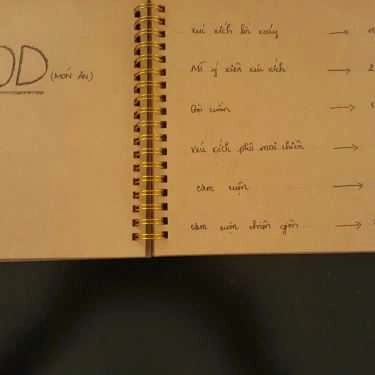 OD (MÓN ĂN)
xúc xích lốc xoáy →
Mì ý xiên xúc xích → 2
Gỏi cuốn →
xúc xích phô mai chiên →
cơm cuộn →
cơm cuộn chiên giòn →